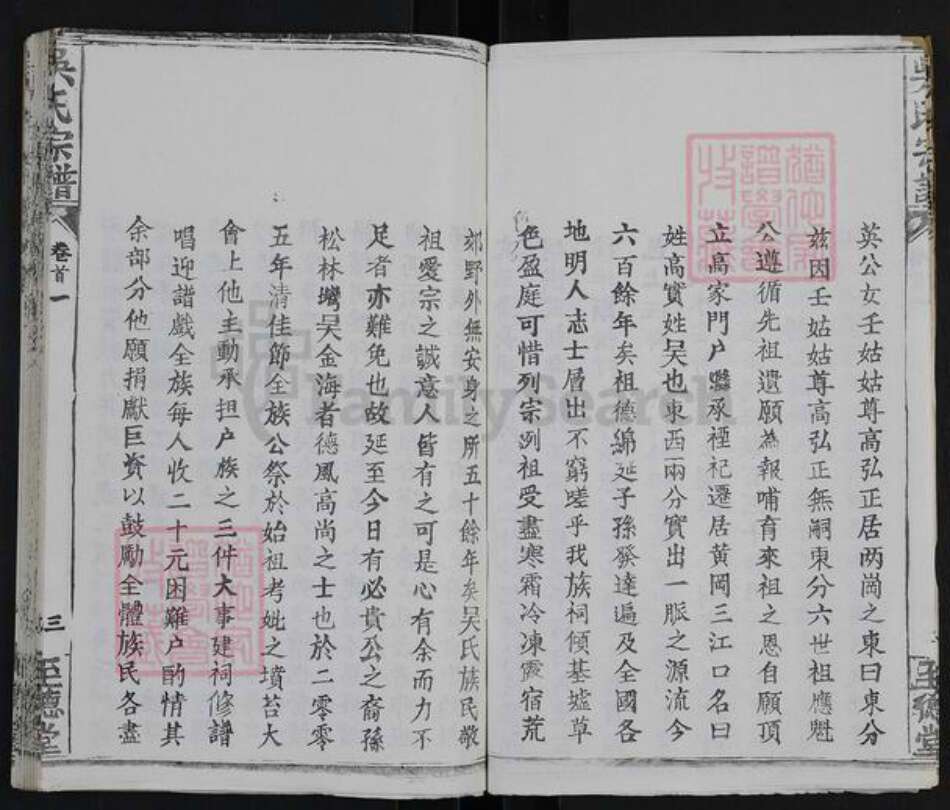 英公女壬姑姑尊高弘正居两崗之東曰東分
兹因壬姑姑尊高弘正無嗣東分六世祖應魁
公遵循先祖遺願為報哺育來祖之恩自願頂
立高家門户繼承禋祀遷居黄岡三江口名曰
姓高實姓吴也東西兩分實出一脈之源流今
六百餘年矣祖德綿延子孫發達遍及全國各
地明人志士層出不窮嗟乎我族祠傾基墟草
色盈庭可惜列宗洌祖受盡寒霜冷凍露宿荒
郊野外無安身之所五十餘年矣吴氏族民敬
祖愛宗之誠意人皆有之可是心有余而力不
足者亦難免也故延至今日有必貴公之裔孫
松林塆吴金海者德風高尚之士也於二零零
五年清佳節全族公祭於始祖考妣之墳苔大
會上他主動承担户族之三件大事建祠修譜
唱迎譜戲全族每人收二十元困難户酌情其
余部分他願捐獻巨資以鼓勵全體族民各盡
吳氏宗譜
卷首一
三
至德堂
吳氏宗譜
至德堂
FamilySearch